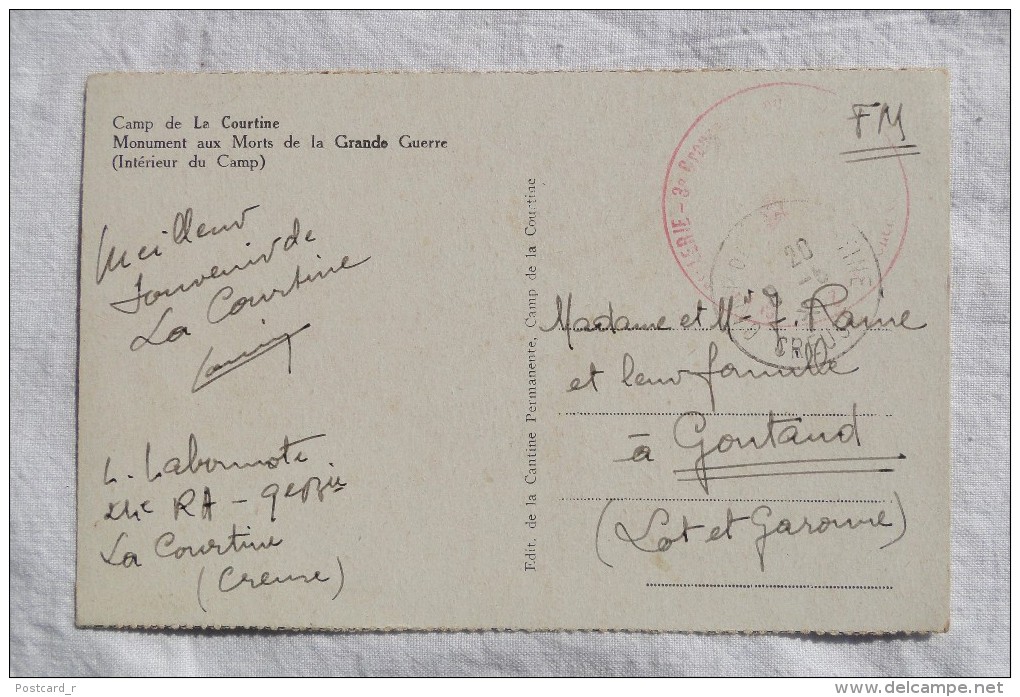 Camp de La Courtine
Monument aux Morts de la Grande Guerre
(Intérieur du Camp)
FM
Meilleur
souvenir de
La Courtine
Edit. de la Cantine Permanente, Camp de la Courtine
20
Madame et Mr J. Raine
et leur famille
à Gontaud
(Lot et Garonne)
L. Labormote
RA -
La Courtine
(Creuse)
Postcard_r
www.delcampe.net